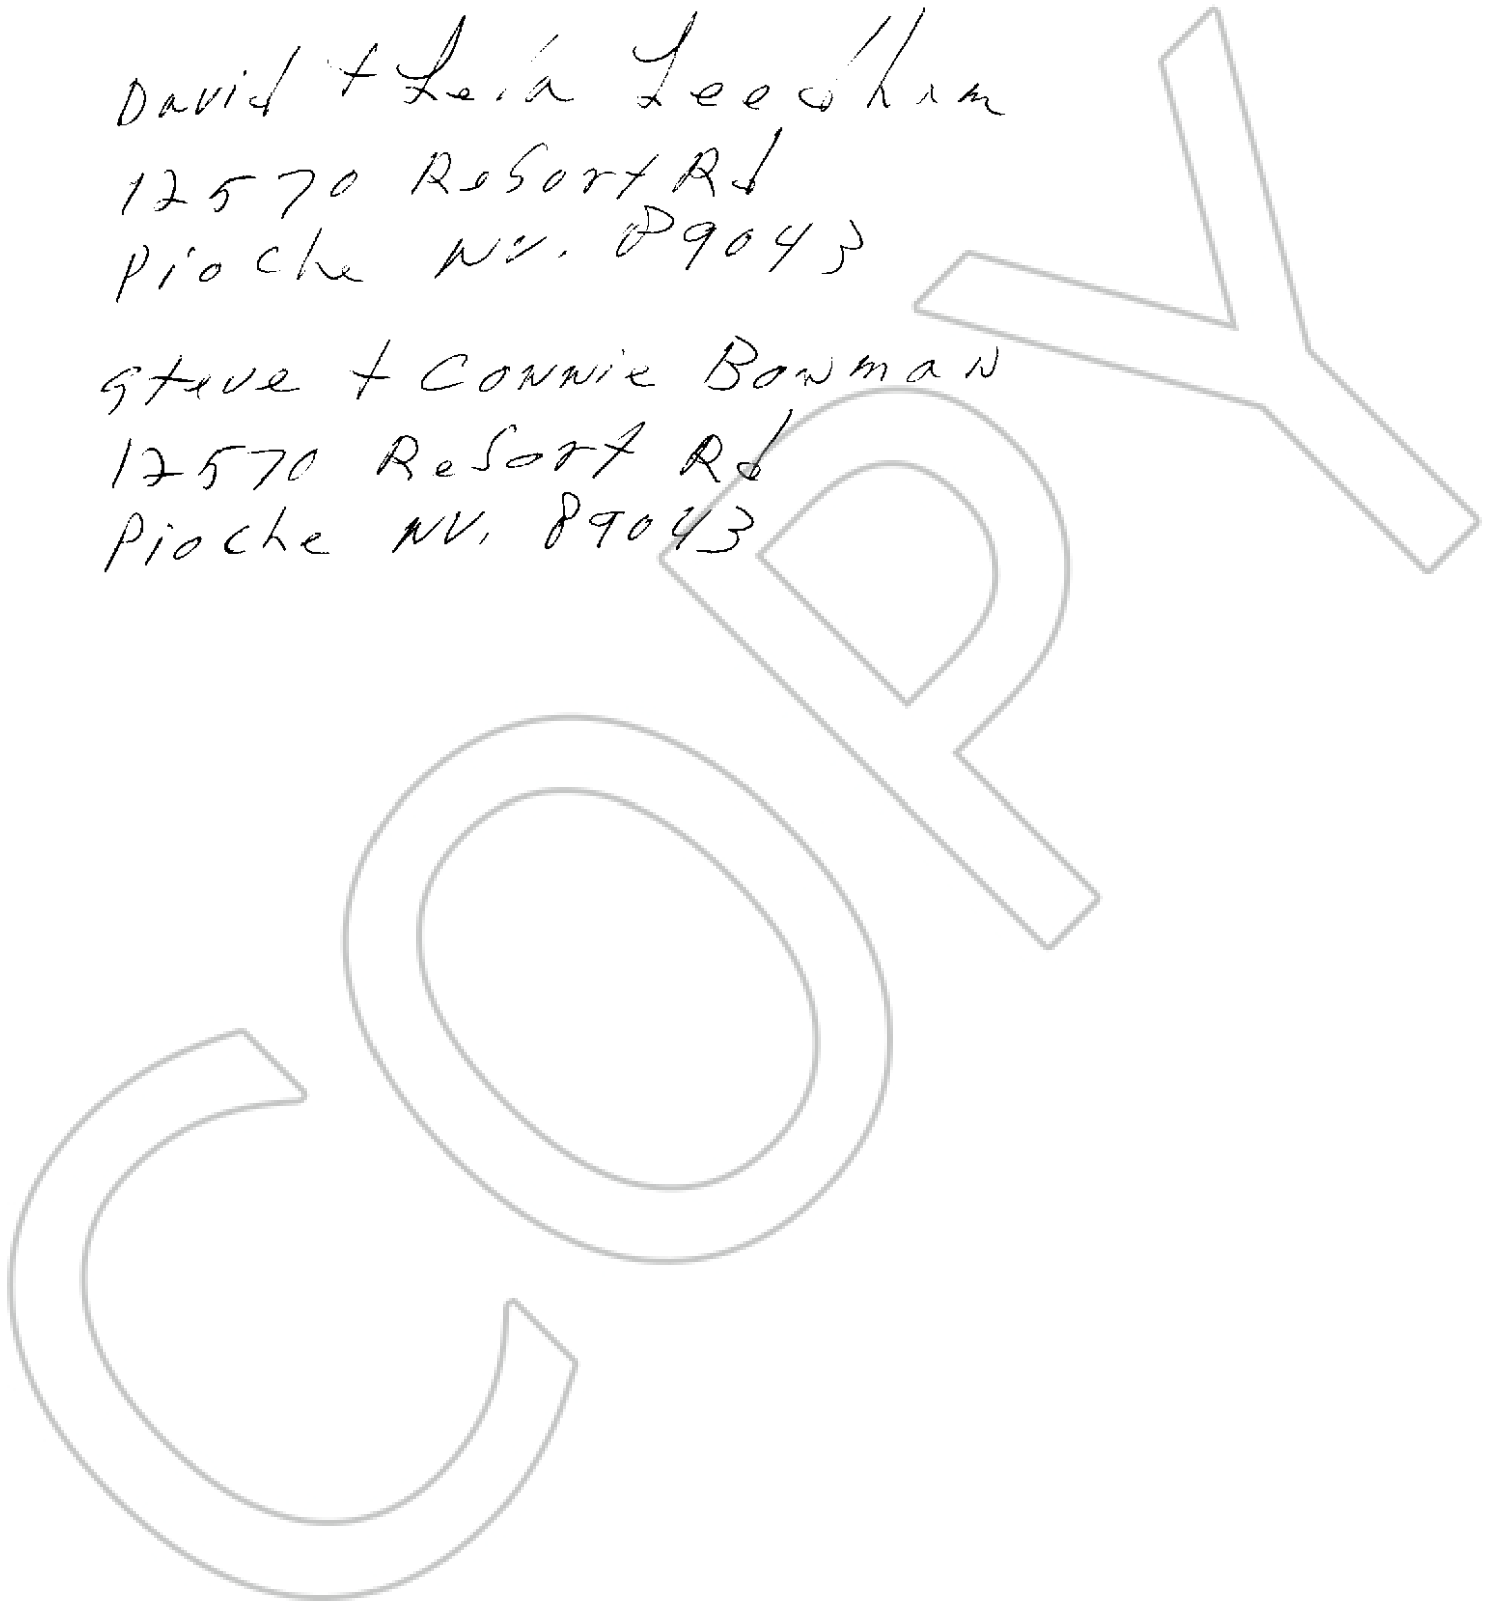 David + Leia Leedham
12570 Resort Rd
Pioche NV. 89043
Steve + Connie Bowman
12570 Resort Rd
Pioche NV. 89043
COPY